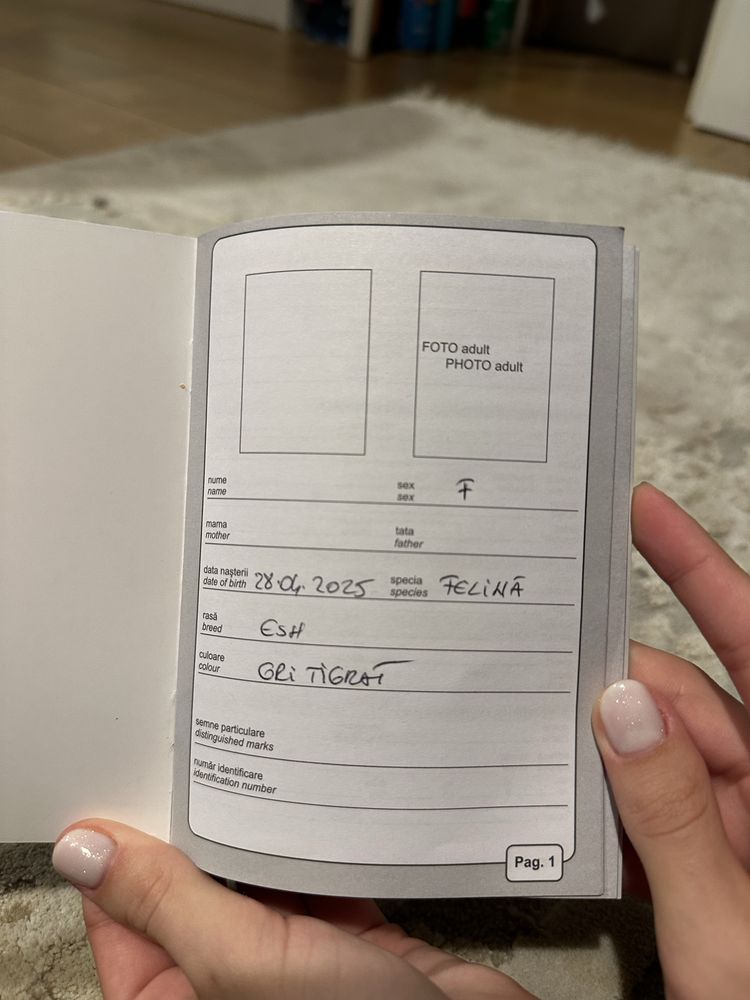 FOTO adult
PHOTO adult
nume
name
sex F
sex
mama
mother
tata
father
data nașterii
date of birth 28.04.2025
specia
species FELINĂ
rasă
breed ESH
culoare
colour GRI TIGRAT
semne particulare
distinguished marks
număr identificare
identification number
Pag. 1